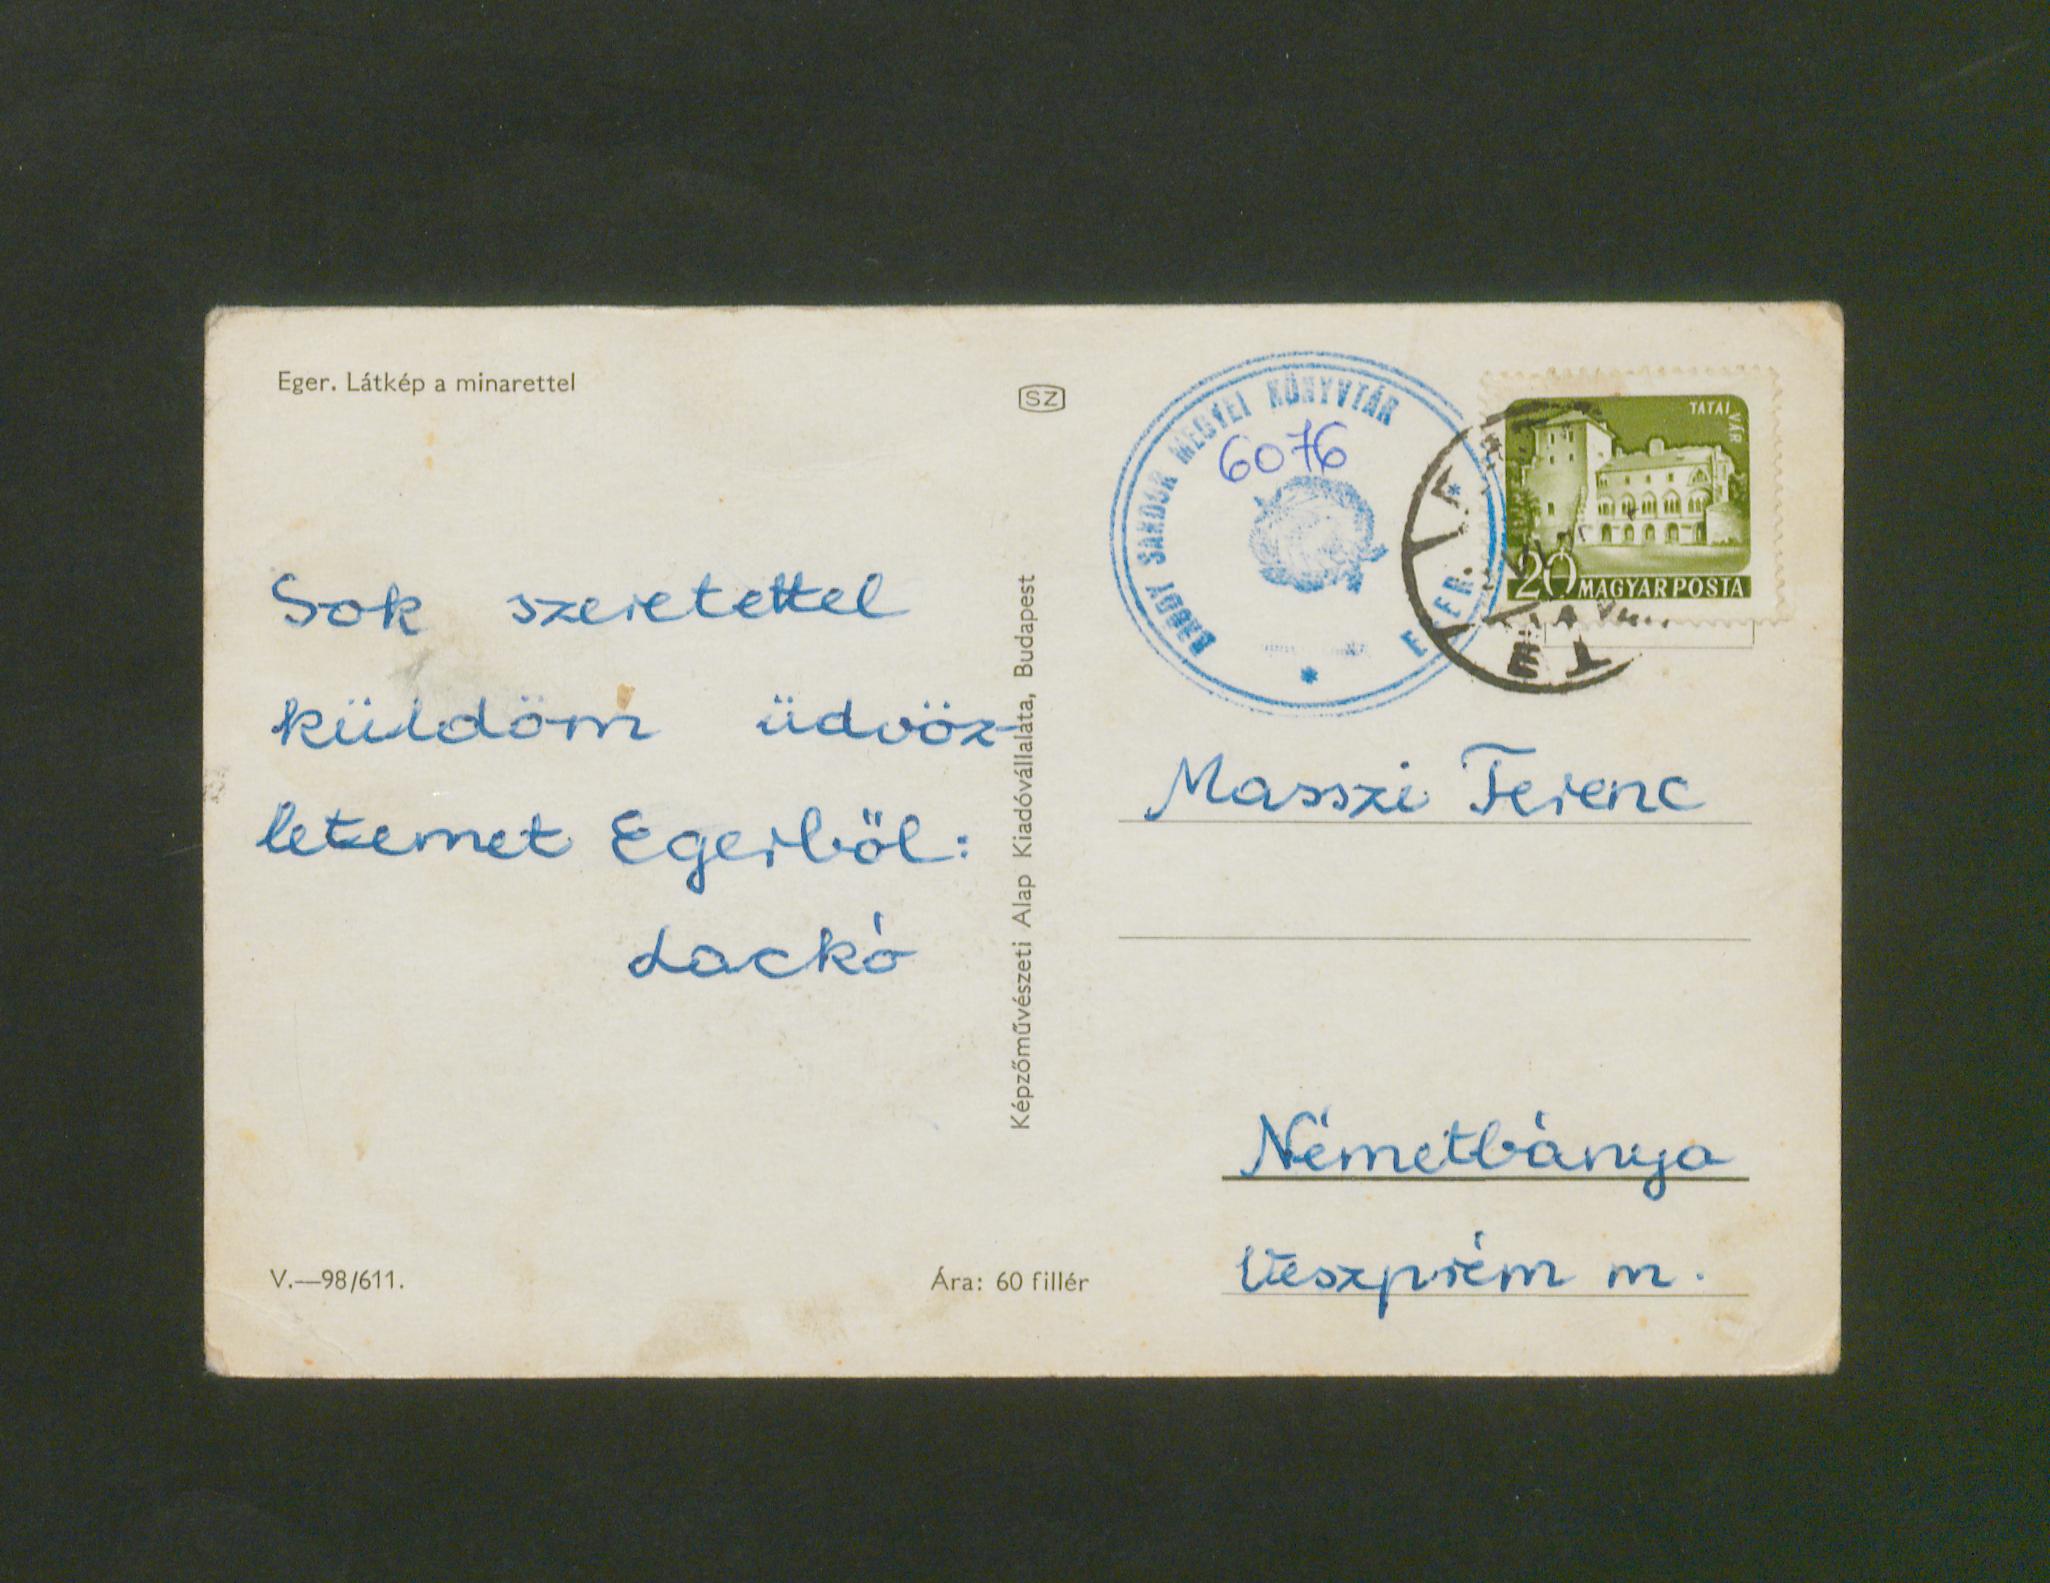 Eger. Látkép a minarettel
SZ
Sok szeretettel
küldöm üdvöz-
letemet Egerből:
Lackó
Képzőművészeti Alap Kiadóvállalata, Budapest
V.—98/611.
Ára: 60 fillér
BRÓDY SÁNDOR MEGYEI KÖNYVTÁR
EGER.
6076
TATAI VÁR
20 MAGYAR POSTA
Masszi Ferenc
Németbánya
Veszprém m.